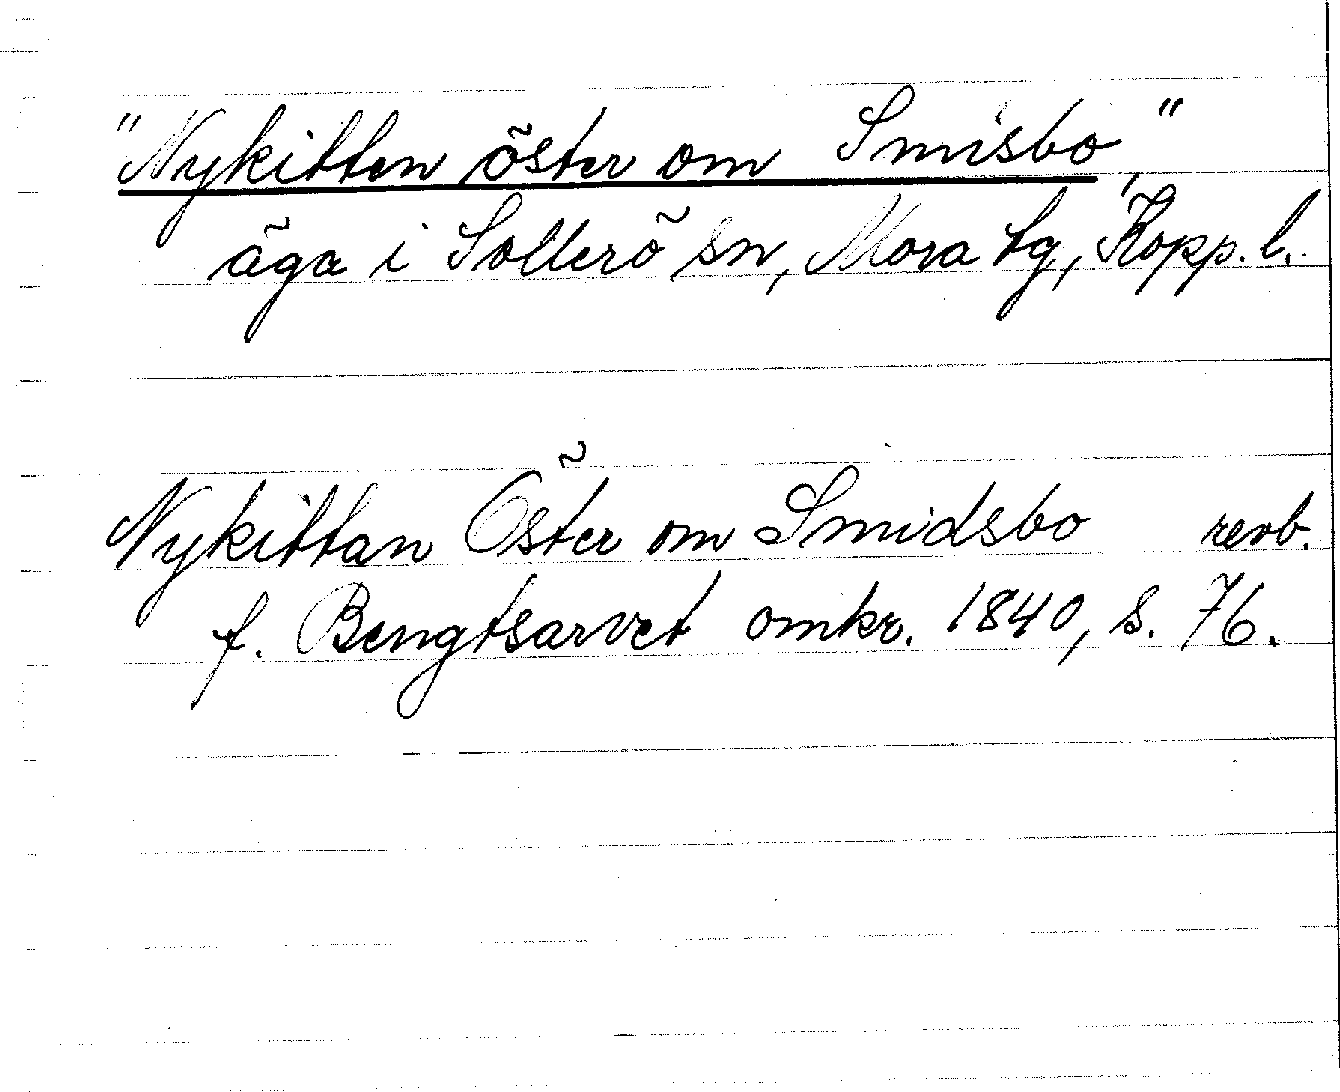 "Nykitten öster om Smisbo,"
äga i Sollerö sn, Mora tg, Kopp. l.
Nykittan Öster om Smidsbo renb.
f. Bengtsarvet omkr. 1840, s. 76.